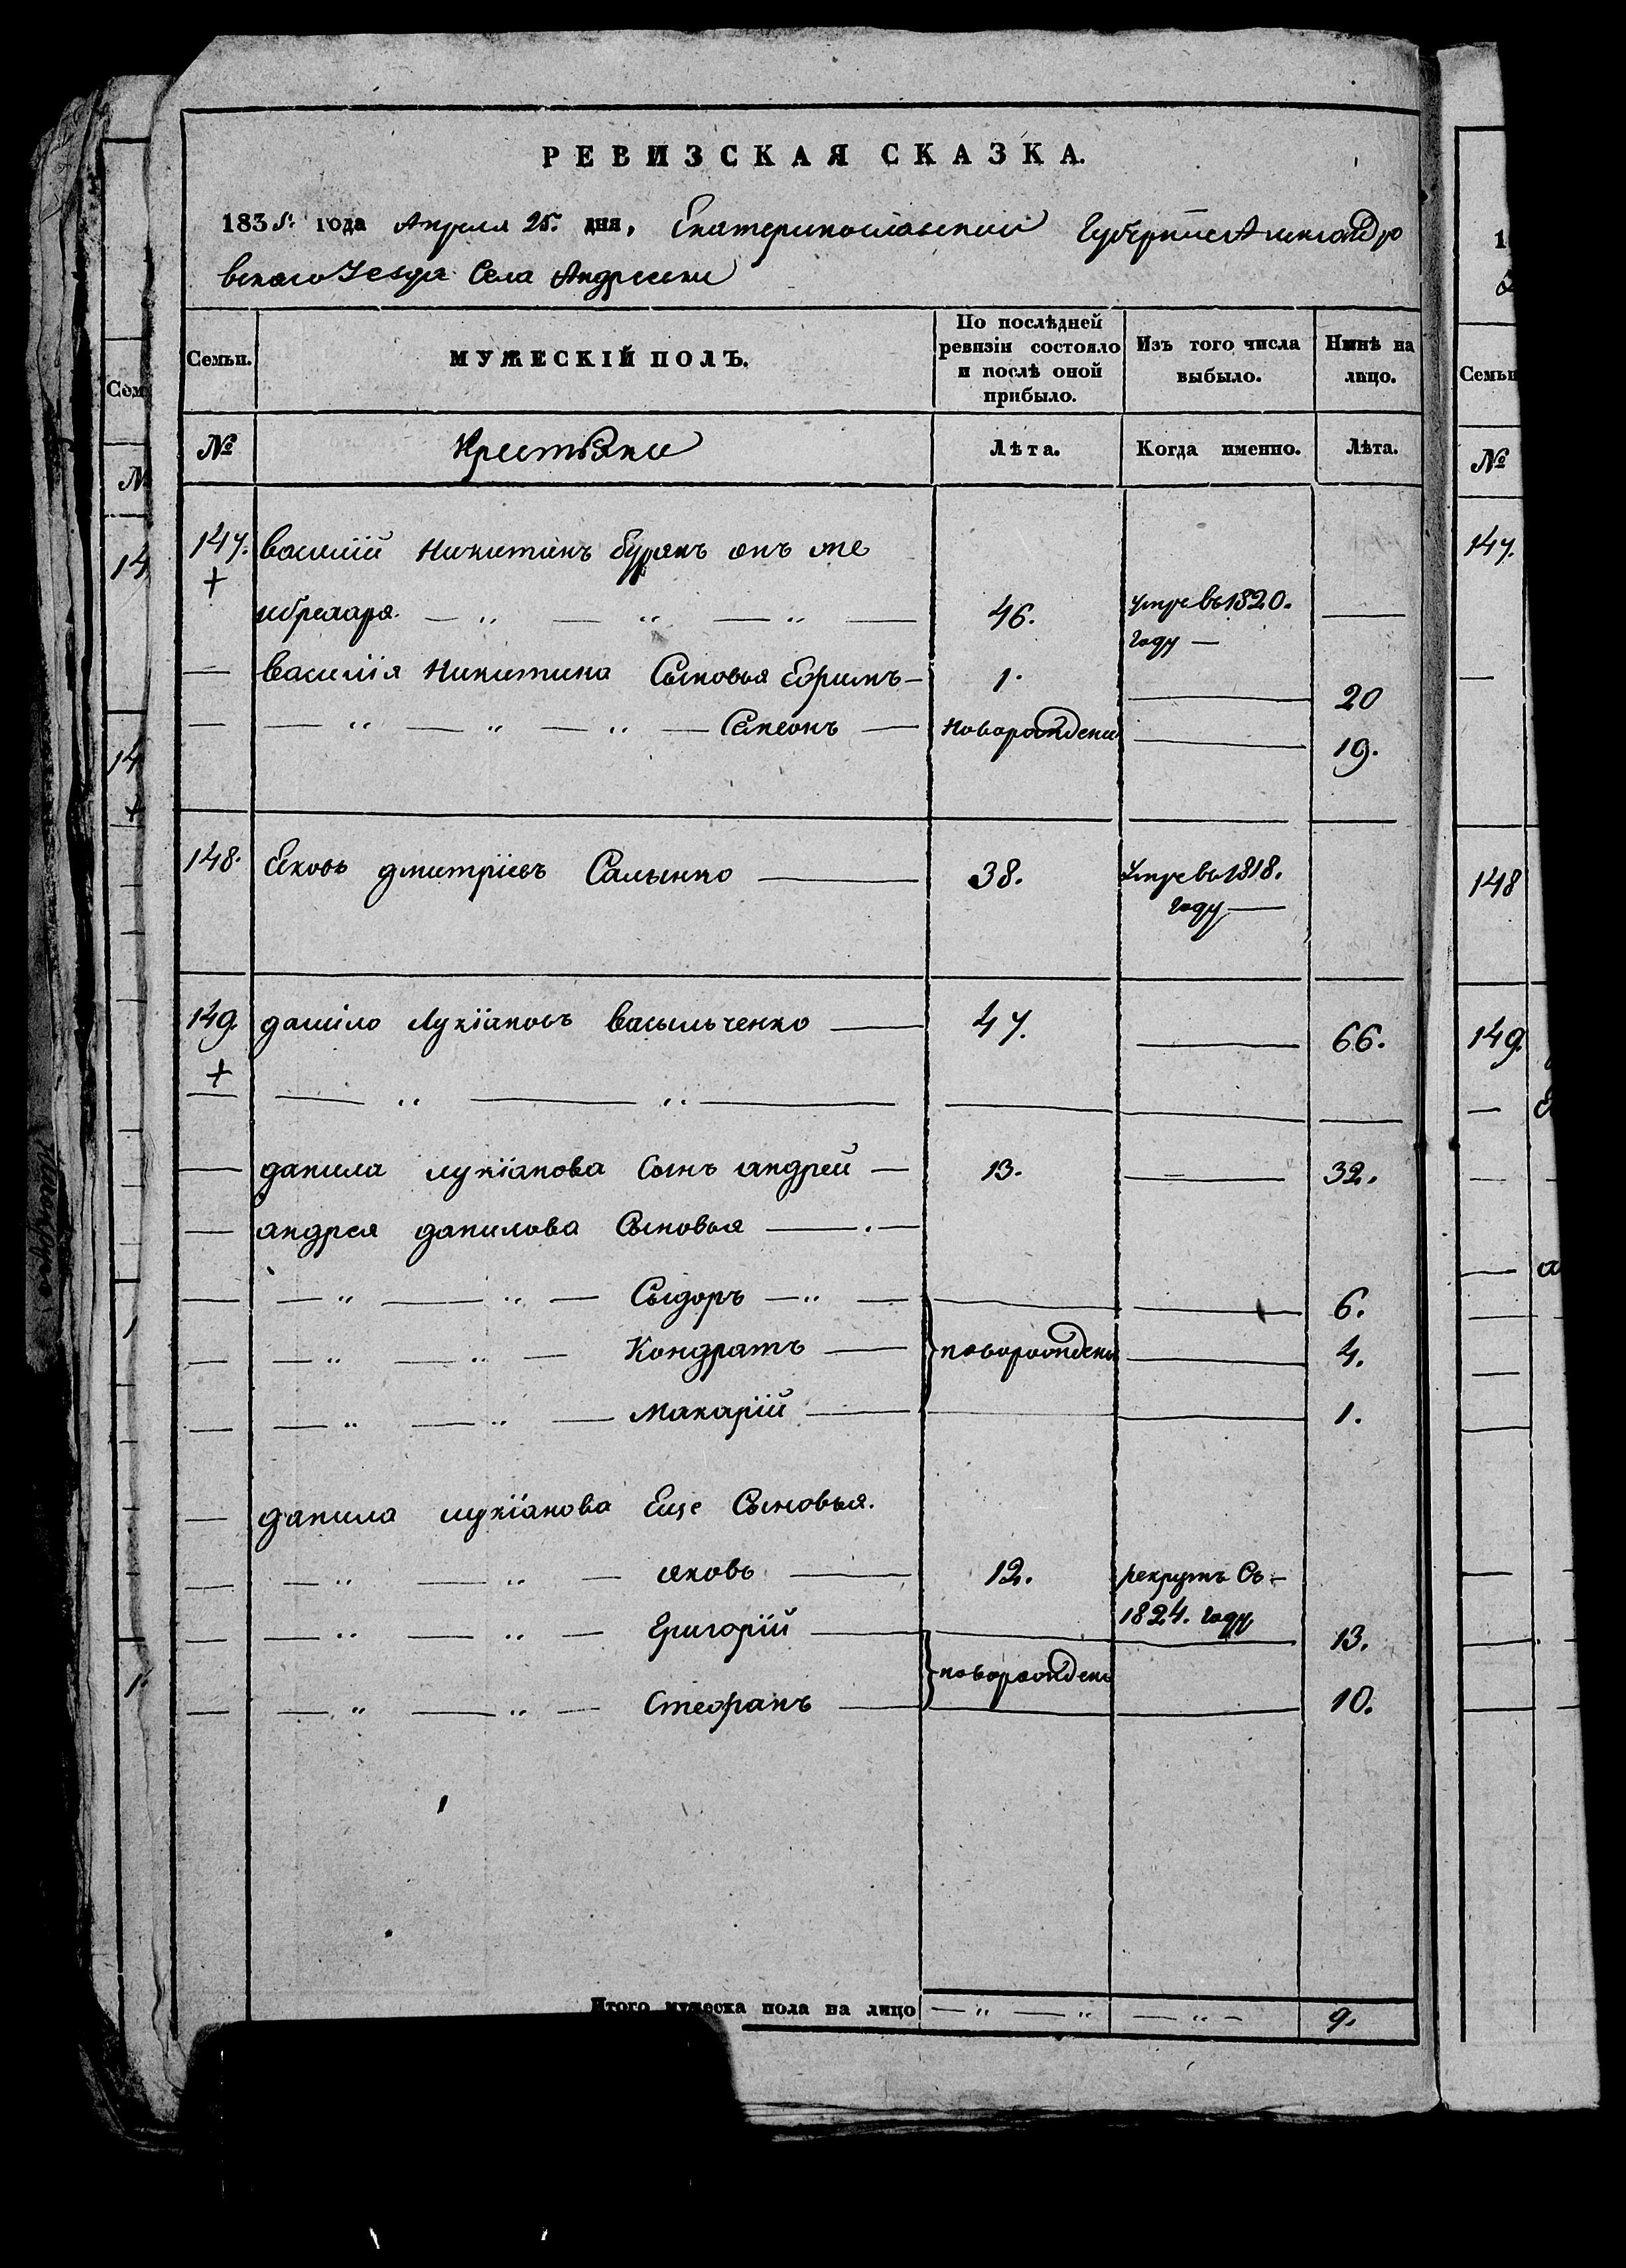 РЕВИЗСКАЯ СКАЗКА.
1835. года Апреля 25. дня, Екатеринославской Губернии Александро
вскаго Уезда Села Андреевки
Семьи. МУЖЕСКІЙ ПОЛЪ. По послѣдней ревизіи состояло и послѣ оной прибыло. Изъ того числа выбыло. Нынѣ на лицо.
№ Крестьяне Лѣта. Когда именно. Лѣта.
147. василій Никитинъ бурякъ онъ же
+
46. умре въ 1820. году —
— василія Никитина Сыновья Ефримъ — 1. — 20
— — " — " — " — Симеонъ — Новорожденъ — 19.
148. Яковъ дмитріевъ Салынко — 38. Умре въ 1818. году —
149. данило Лукіановъ васильченко — 47. — 66.
+
— данила лукіанова Сынъ андрей — 13. — 32.
— андрея данилова Сыновья — . —
— — " — " — Сыдоръ — " — — 6.
— — " — " — Кондратъ — } новорождены — 4.
— — " — " — Макарій — — 1.
— данила лукіанова Еще Сыновья.
— — " — " — яковъ — 12. рекрутъ Съ — 1824. году
— — " — " — Григорій — — 13.
} новорождены
— — " — " — Стефанъ — — 10.
Итого мужеска пола на лицо — " — " — " — 9.
Сем
№
14
14
+
1
Семьи
№
147.
148
149.